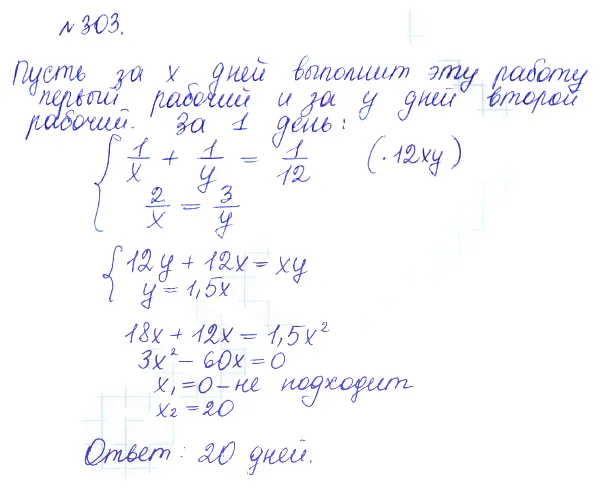 №303.
Пусть за x дней выполнит эту работу
первый рабочий и за y дней второй
рабочий. За 1 день:
1/x + 1/y = 1/12 (·12xy)
2/x = 3/y
12y + 12x = xy
y = 1,5x
18x + 12x = 1,5x²
3x² - 60x = 0
x₁ = 0 - не подходит
x₂ = 20
Ответ: 20 дней.